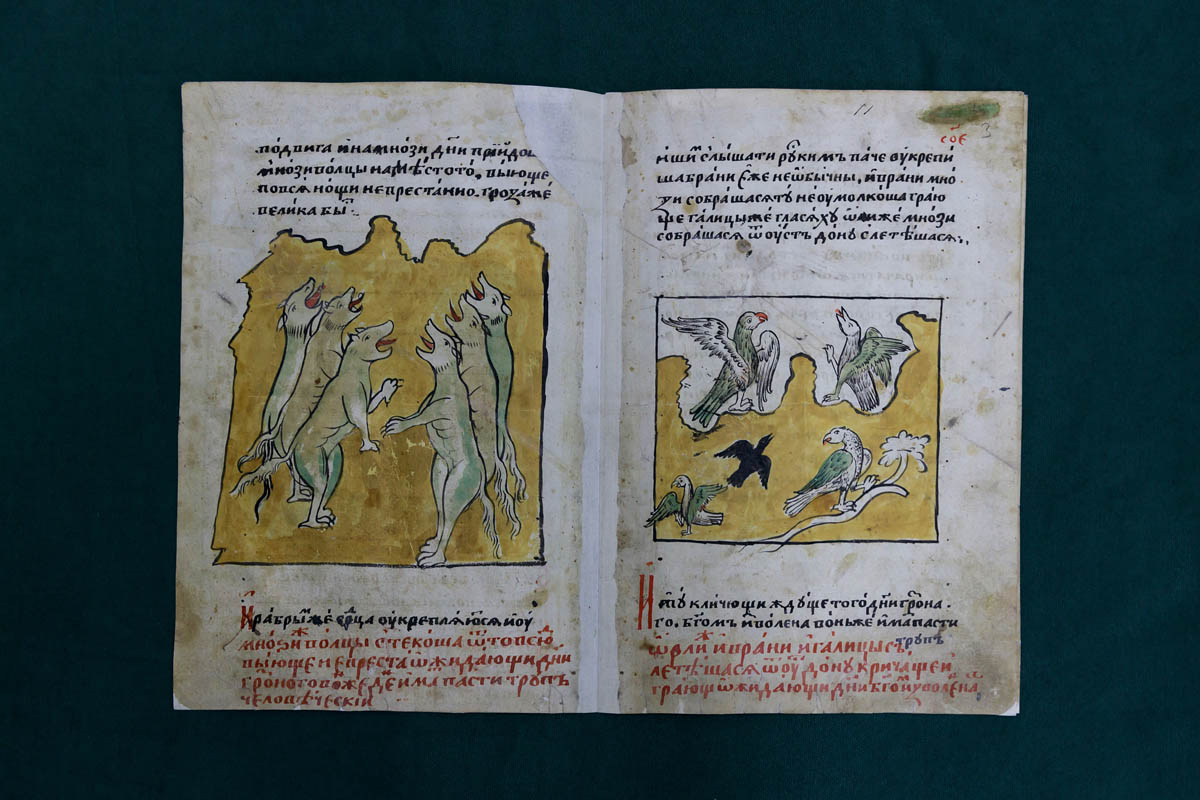 подвига и на мнози дн҃и прїидо
мнози волцы на мѣсто то, выюще
по вся нощи непрестанно. гроза же
велика бы҆
храбрым же срдца оукрепляюся и оу
мнози волцы стекоша ѿ
выюще непреста ѡжидающи дни
грѡного божед имѧ пасти трупъ
человѣческїи
соє
3
и слышати паче вукрепи
ша брани еже неѡбычны, и врани мно
зи собрашася ту не оумолкоша граю
ще галицы же гласяху ѡ мнози
собрашася ѿ оустъ дону слетѣшася
И ту кличющи ждуще того дни грѡна
го. бг҃ом и волена вонь же има пасти
трупъ
ѡрли и врани и галицы съ
летѣшася ѿ оу дону кричаще и
грающ ѡжидающи дни бг҃ом иуволена